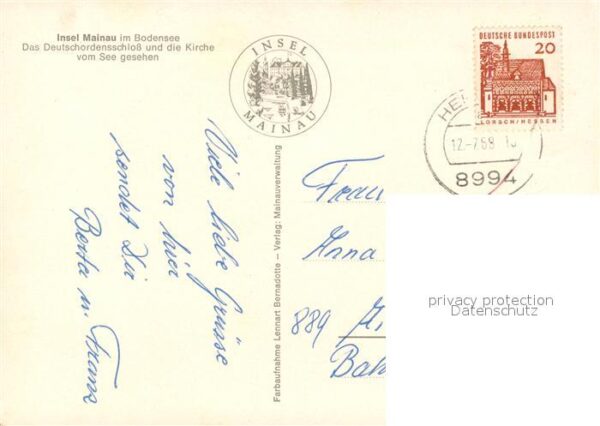 Insel Mainau im Bodensee
Das Deutschordensschloß und die Kirche
vom See gesehen
INSEL
MAINAU
DEUTSCHE BUNDESPOST
20
LORSCH/HESSEN
HE
12.-7.68
8994
Viele liebe Grüsse
von hier
sendet Dir
Berta u. Franz
Farbaufnahme Lennart Bernadotte – Verlag: Mainauverwaltung
Frau
Anna
889
Bah
privacy protection
Datenschutz